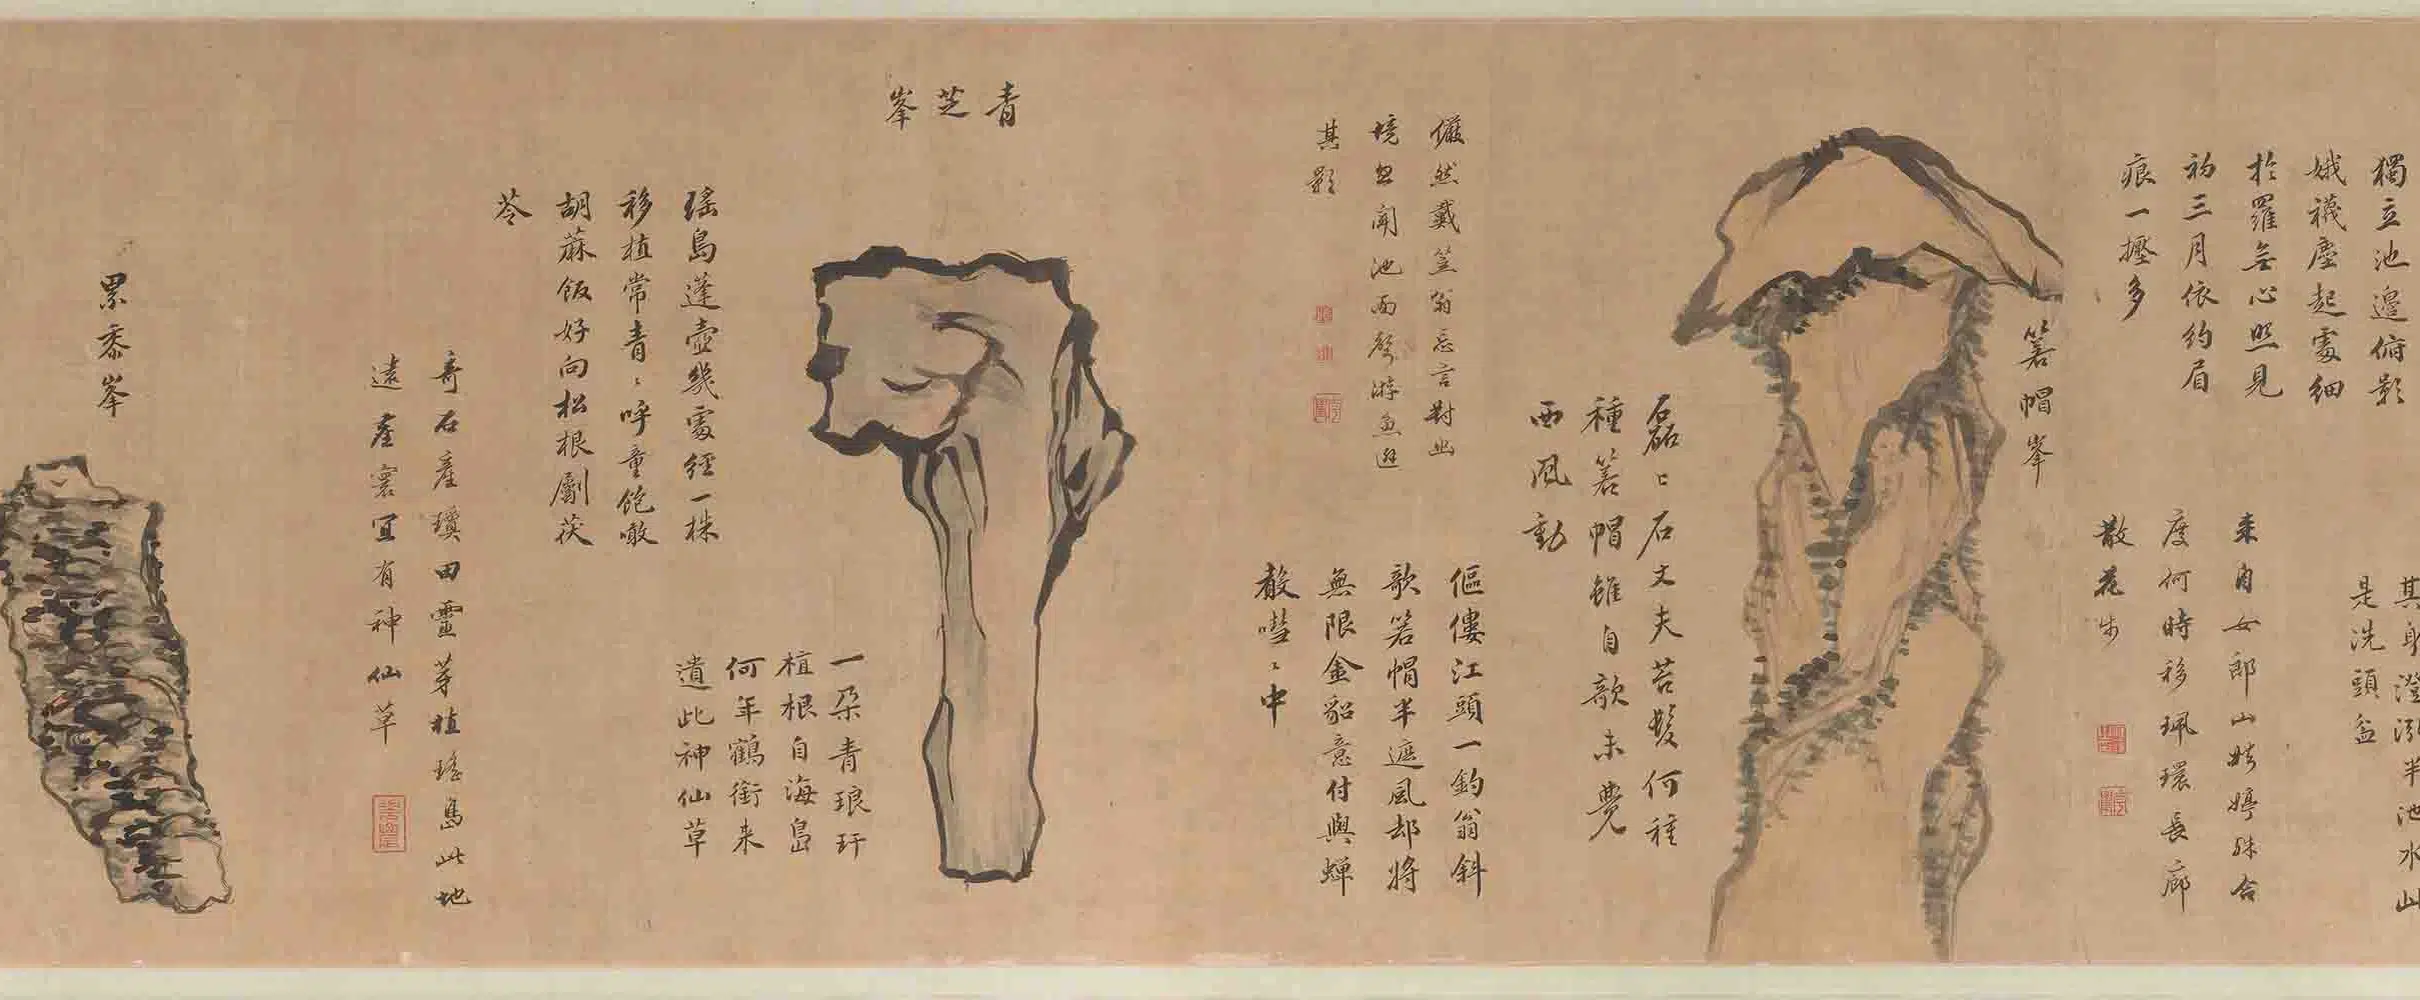 獨立池邊俯影
娥襪塵起處細
於羅無心照見
初三月依約眉
痕一擪多
其身澄泓半池水山
是洗頭盆
來自女郎山娉婷殊合
度何時移珮環長廊
散花步
箬帽峯
磊〻石丈夫苔髮何種
種箬帽雖自歌未覺
西風動
儼然戴笠翁忘言對此
境忽聞池面聲游魚避
其影
傴僂江頭一釣翁斜
歌箬帽半遮風却將
無限金貂意付與蟬
聲嘒〻中
青芝峯
瑤島蓬壺幾處經一株
移植常青〻呼童飽噉
胡蔴飯好向松根劚茯
苓
一朶青琅玕
植根自海島
何年鶴銜来
遺此神仙草
奇石產瓊田靈芽植瑤島此地
遠塵寰宜有神仙草
累黍峯